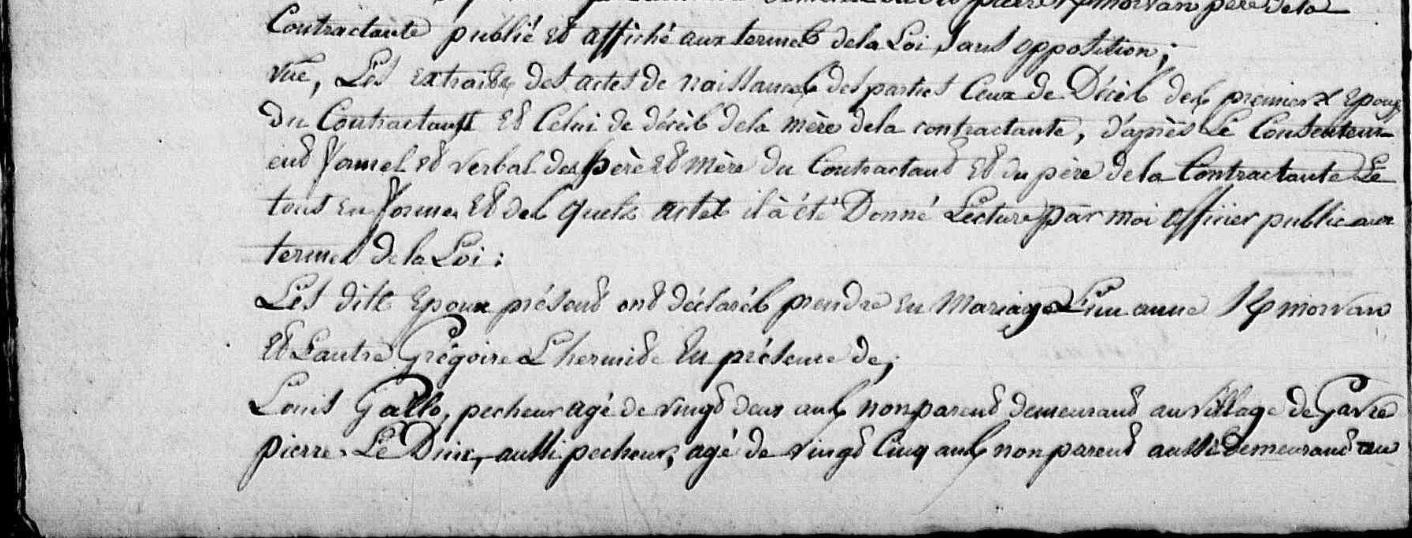 pierre Kmorvan père de la
Contractante publié et affiché aux termes de la Loi, sans opposition;
vue, Les extraits des actes de naissances des parties Ceux de Décès des premiers Epoux
du Contractant et Celui de décès de la mère de la contractante, d'après Le Consentem
ent formel et verbal des père et mère du Contractant et du père de la Contractante Le
tout En forme, Et des quels actes il à été Donné Lecture par moi officier public aux
termes de la Loi:
Les dits Epoux présent ont déclarés prendre En Mariage L'un anne Kmorvan
Et Lautre Grégoire Lhermite En présence de,
Louis Gallo, pecheur agé de vingt deux ans non parent demeurant au village de Gavre
pierre Le Duic, aussi pecheur, agé de vingt Cinq ans non parent aussi Demeurant au